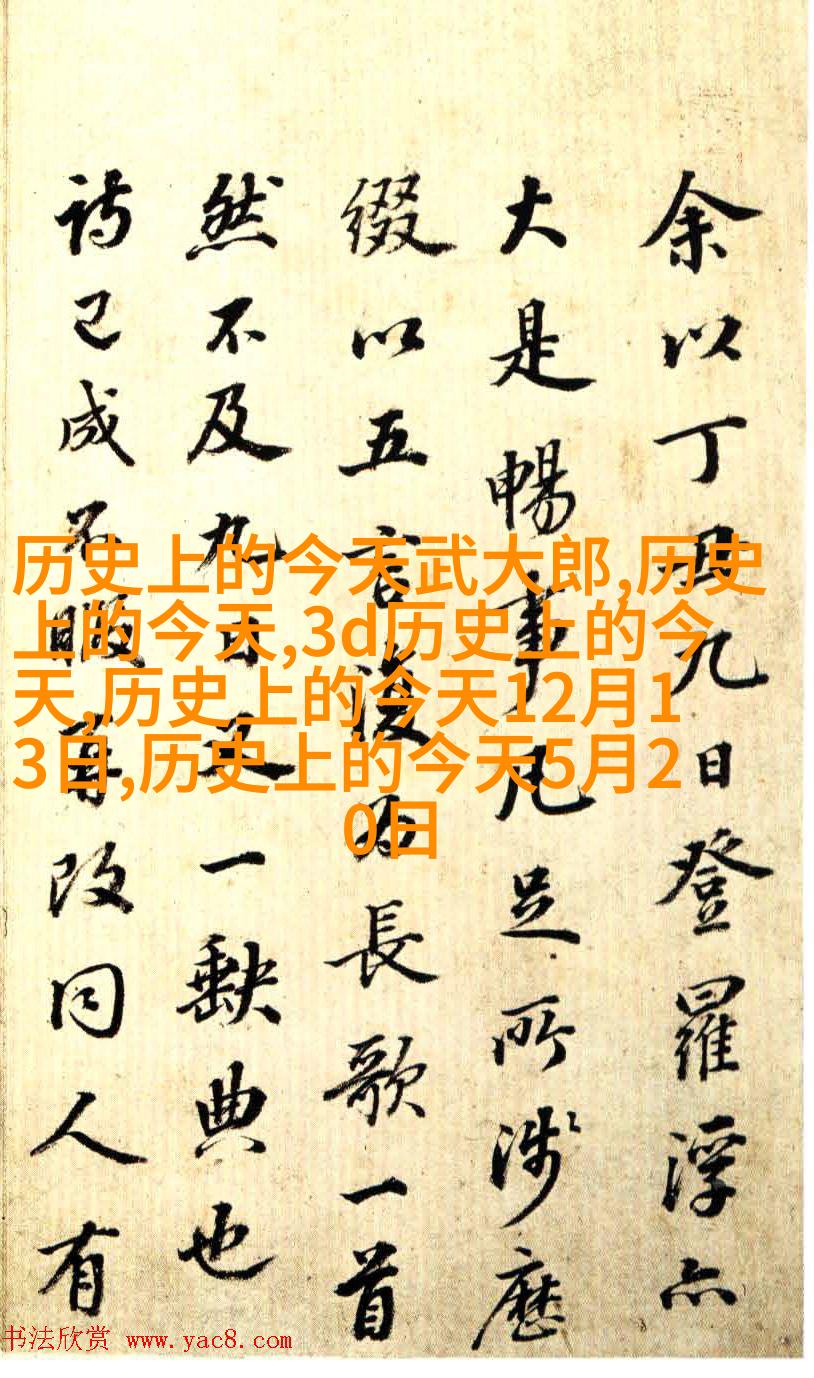 余以丁丑九日登羅浮亦
大是暢事凡足所涉歷
綴以五言復為長歌一首
然不及九日一缺典也
詩已成不暇再改同人有
历史上的今天武大郎,历史
上的今天,3d历史上的今
天,历史上的今天12月1
3日,历史上的今天5月2
0日
书法欣赏 www.yac8.com